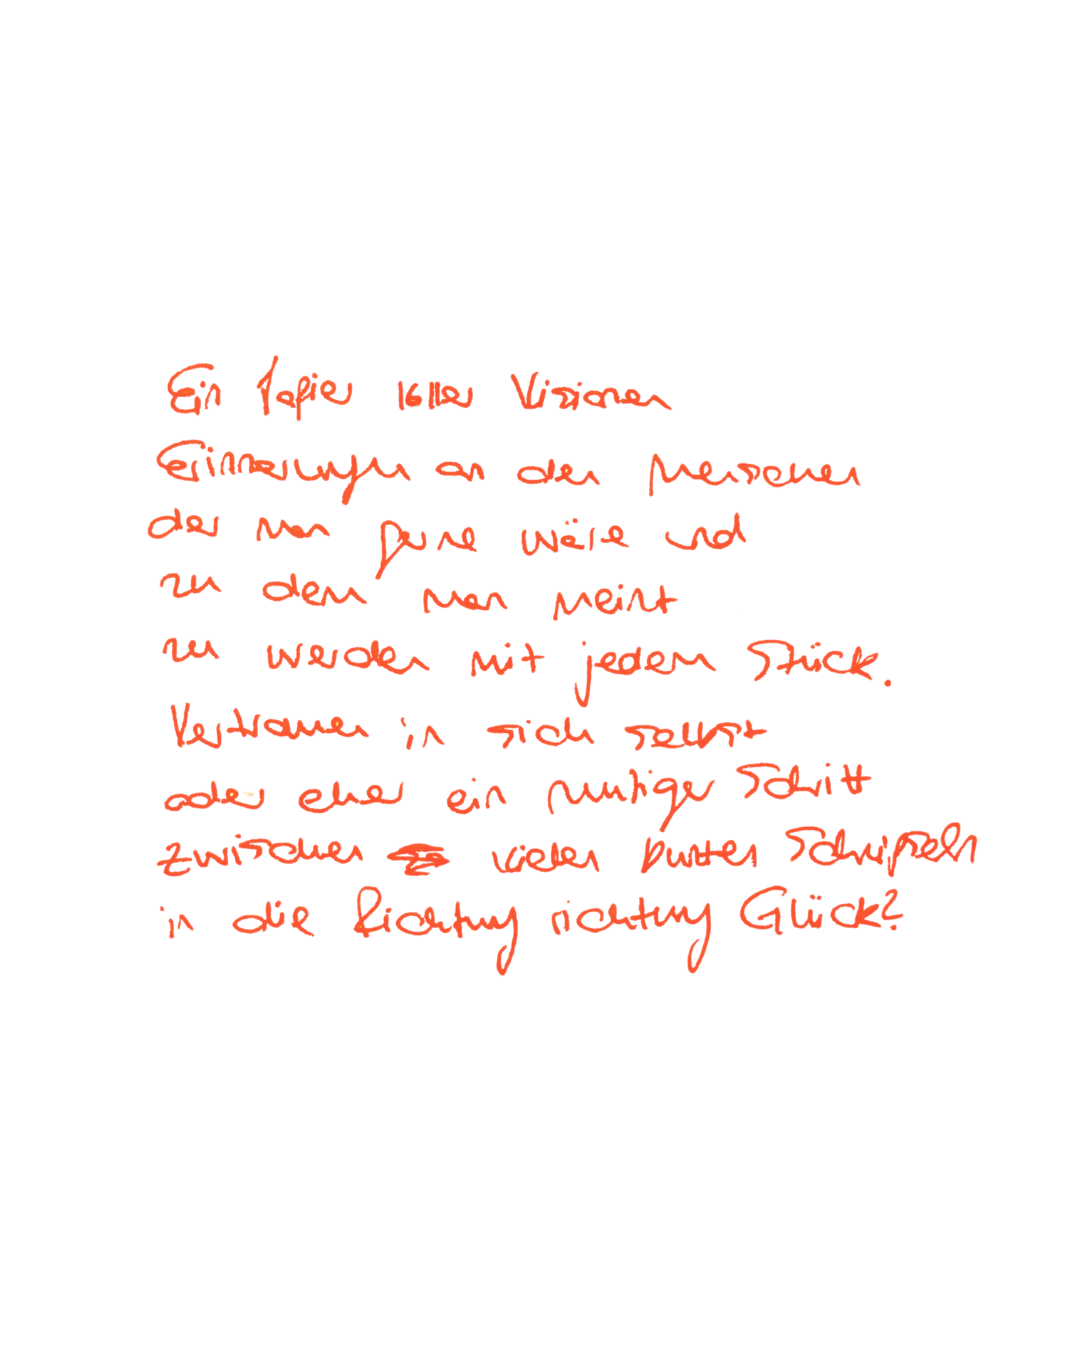 Ein Papier voller Visionen
Erinnerungen an den Menschen
der man gerne wäre und
zu dem man meint
zu werden mit jedem Stück.
Vertrauen in sich selbst
oder eher ein mutiger Schritt
zwischen vielen bunten Schnipseln
in die Richtung richtung Glück?